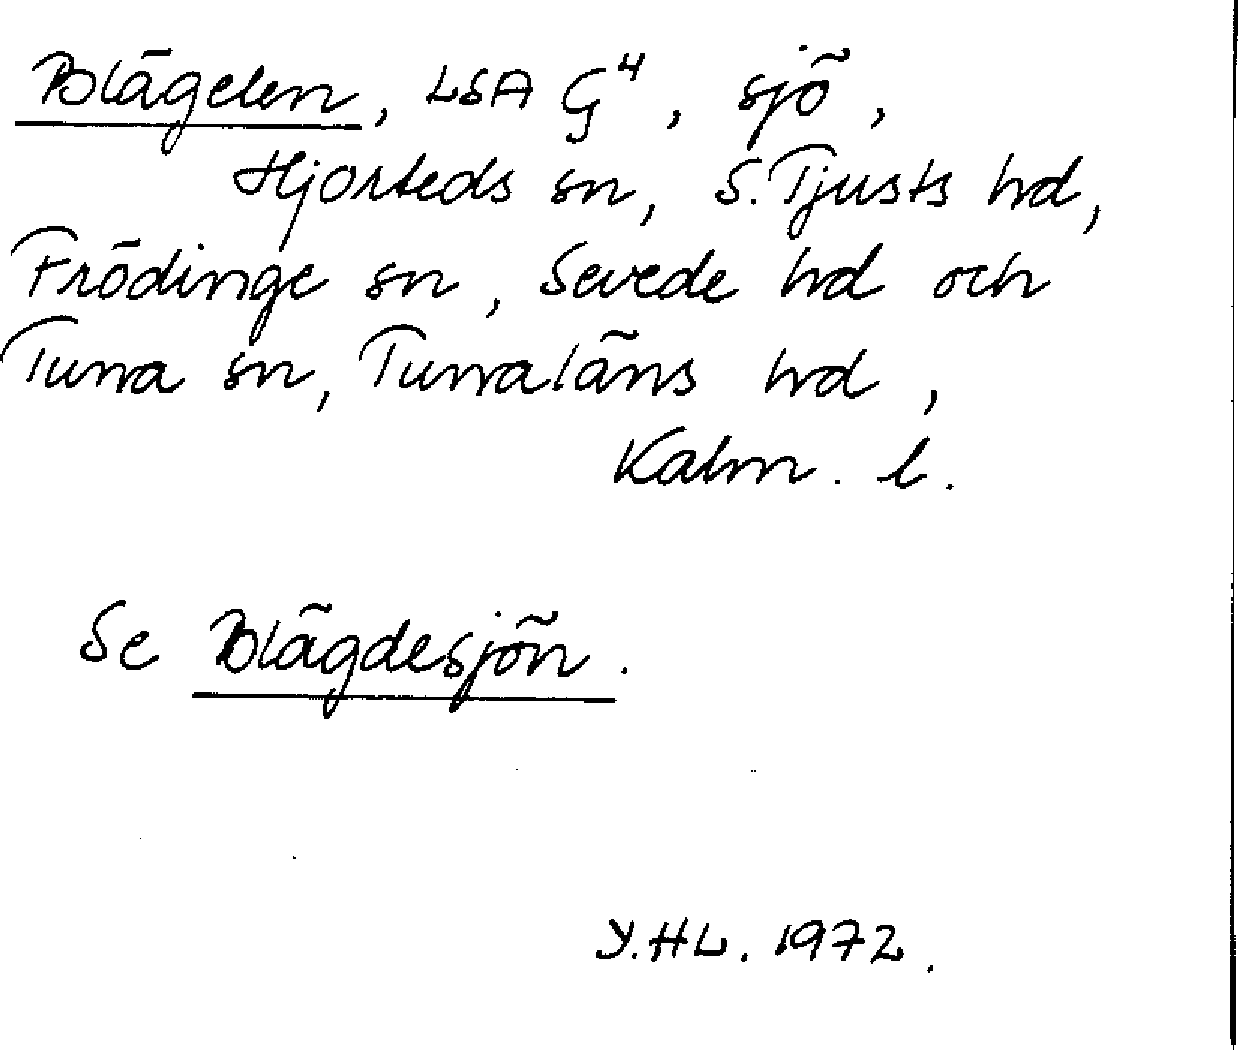 Blägelen, LSA G⁴, sjö,
Hjorteds sn, S. Tjusts hd,
Frödinge sn, Sevede hd och
Tuna sn, Tunaläns hd,
Kalm. l.
Se Blägdesjön.
Y.HL. 1972.